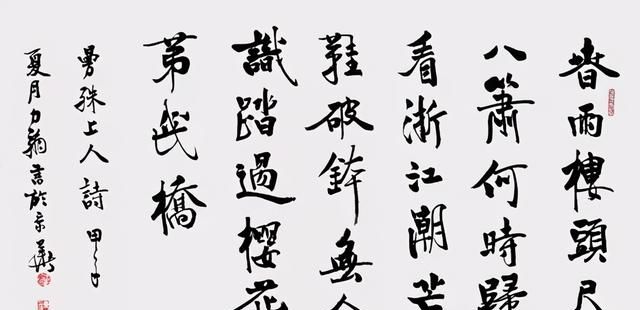 春雨樓頭尺
八簫何時歸
看浙江潮芒
鞋破鉢無人
識踏過櫻花
第幾橋
曼殊上人詩 甲午
夏月力書於京華